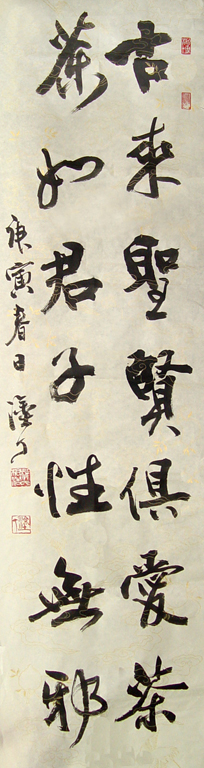 古来聖賢俱愛茶
茶如君子性無邪
庚寅春日